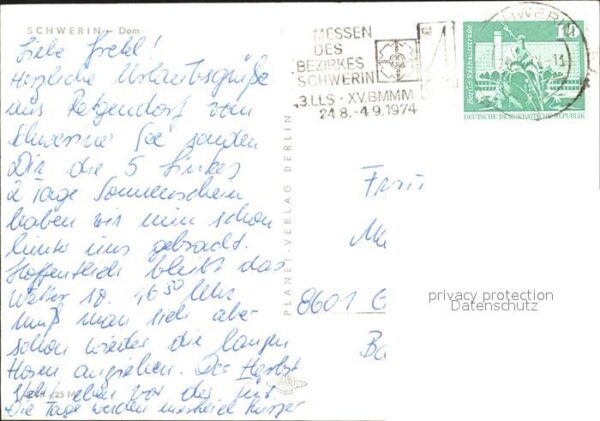 SCHWERIN - Dom
Liebe Gretel!
Herzliche Urlaubsgrüße
aus Retgendorf vom
Schweriner See senden
Dir die 5 Finkes
2 Tage Sonnenschein
haben wir nun schon
hinter uns gebracht.
Hoffentlich bleibt das
Wetter so. 16 50 Uhr
muß man sich aber
schon wieder die langen
Hosen anziehen. Der Herbst
steht eben vor der Tür.
Die Tage werden kürzer
PLANET-VERLAG BERLIN
MESSEN
DES
BEZIRKES
SCHWERIN
3.LLS · XV.BMMM
24.8.-4.9.1974
SCHWERIN
10
Berlin, Rathausstraße
DEUTSCHE DEMOKRATISCHE REPUBLIK
Frau
8601 G
privacy protection
Datenschutz
Ba